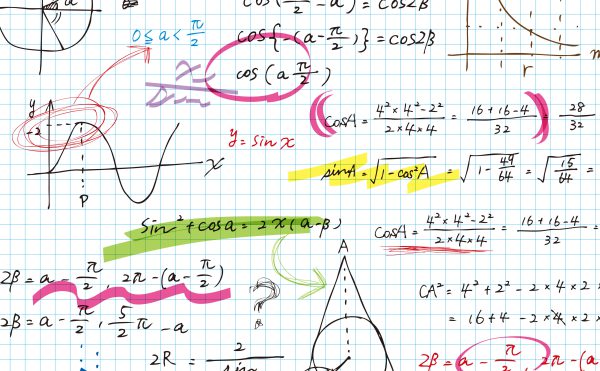 cos(π/2 - a) = cos2β
a
0 ≦ a < π/2
cos{-(a-π/2)} = cos2β
cos(a π/2)
r
y
-2
x
P
y = sin x
cosA = (4²×4²-2²)/(2×4×4) = (16+16-4)/32 = 28/32
sinA = √(1-cos²A) = √(1-49/64) = √(15/64) =
sin²+cosa = 2x(a-β)
cosA = (4²×4²-2²)/(2×4×4) = (16+16-4)/32 =
2β = a - π/2, 2π-(a-π/2)
A
?
CA² = 4²+2²-2×4×2×
2β = a - π/2, 5/2 π - a
= 16+4-2×4×2×
2R = 2/sina
2β = a - π/2, 2π-(a